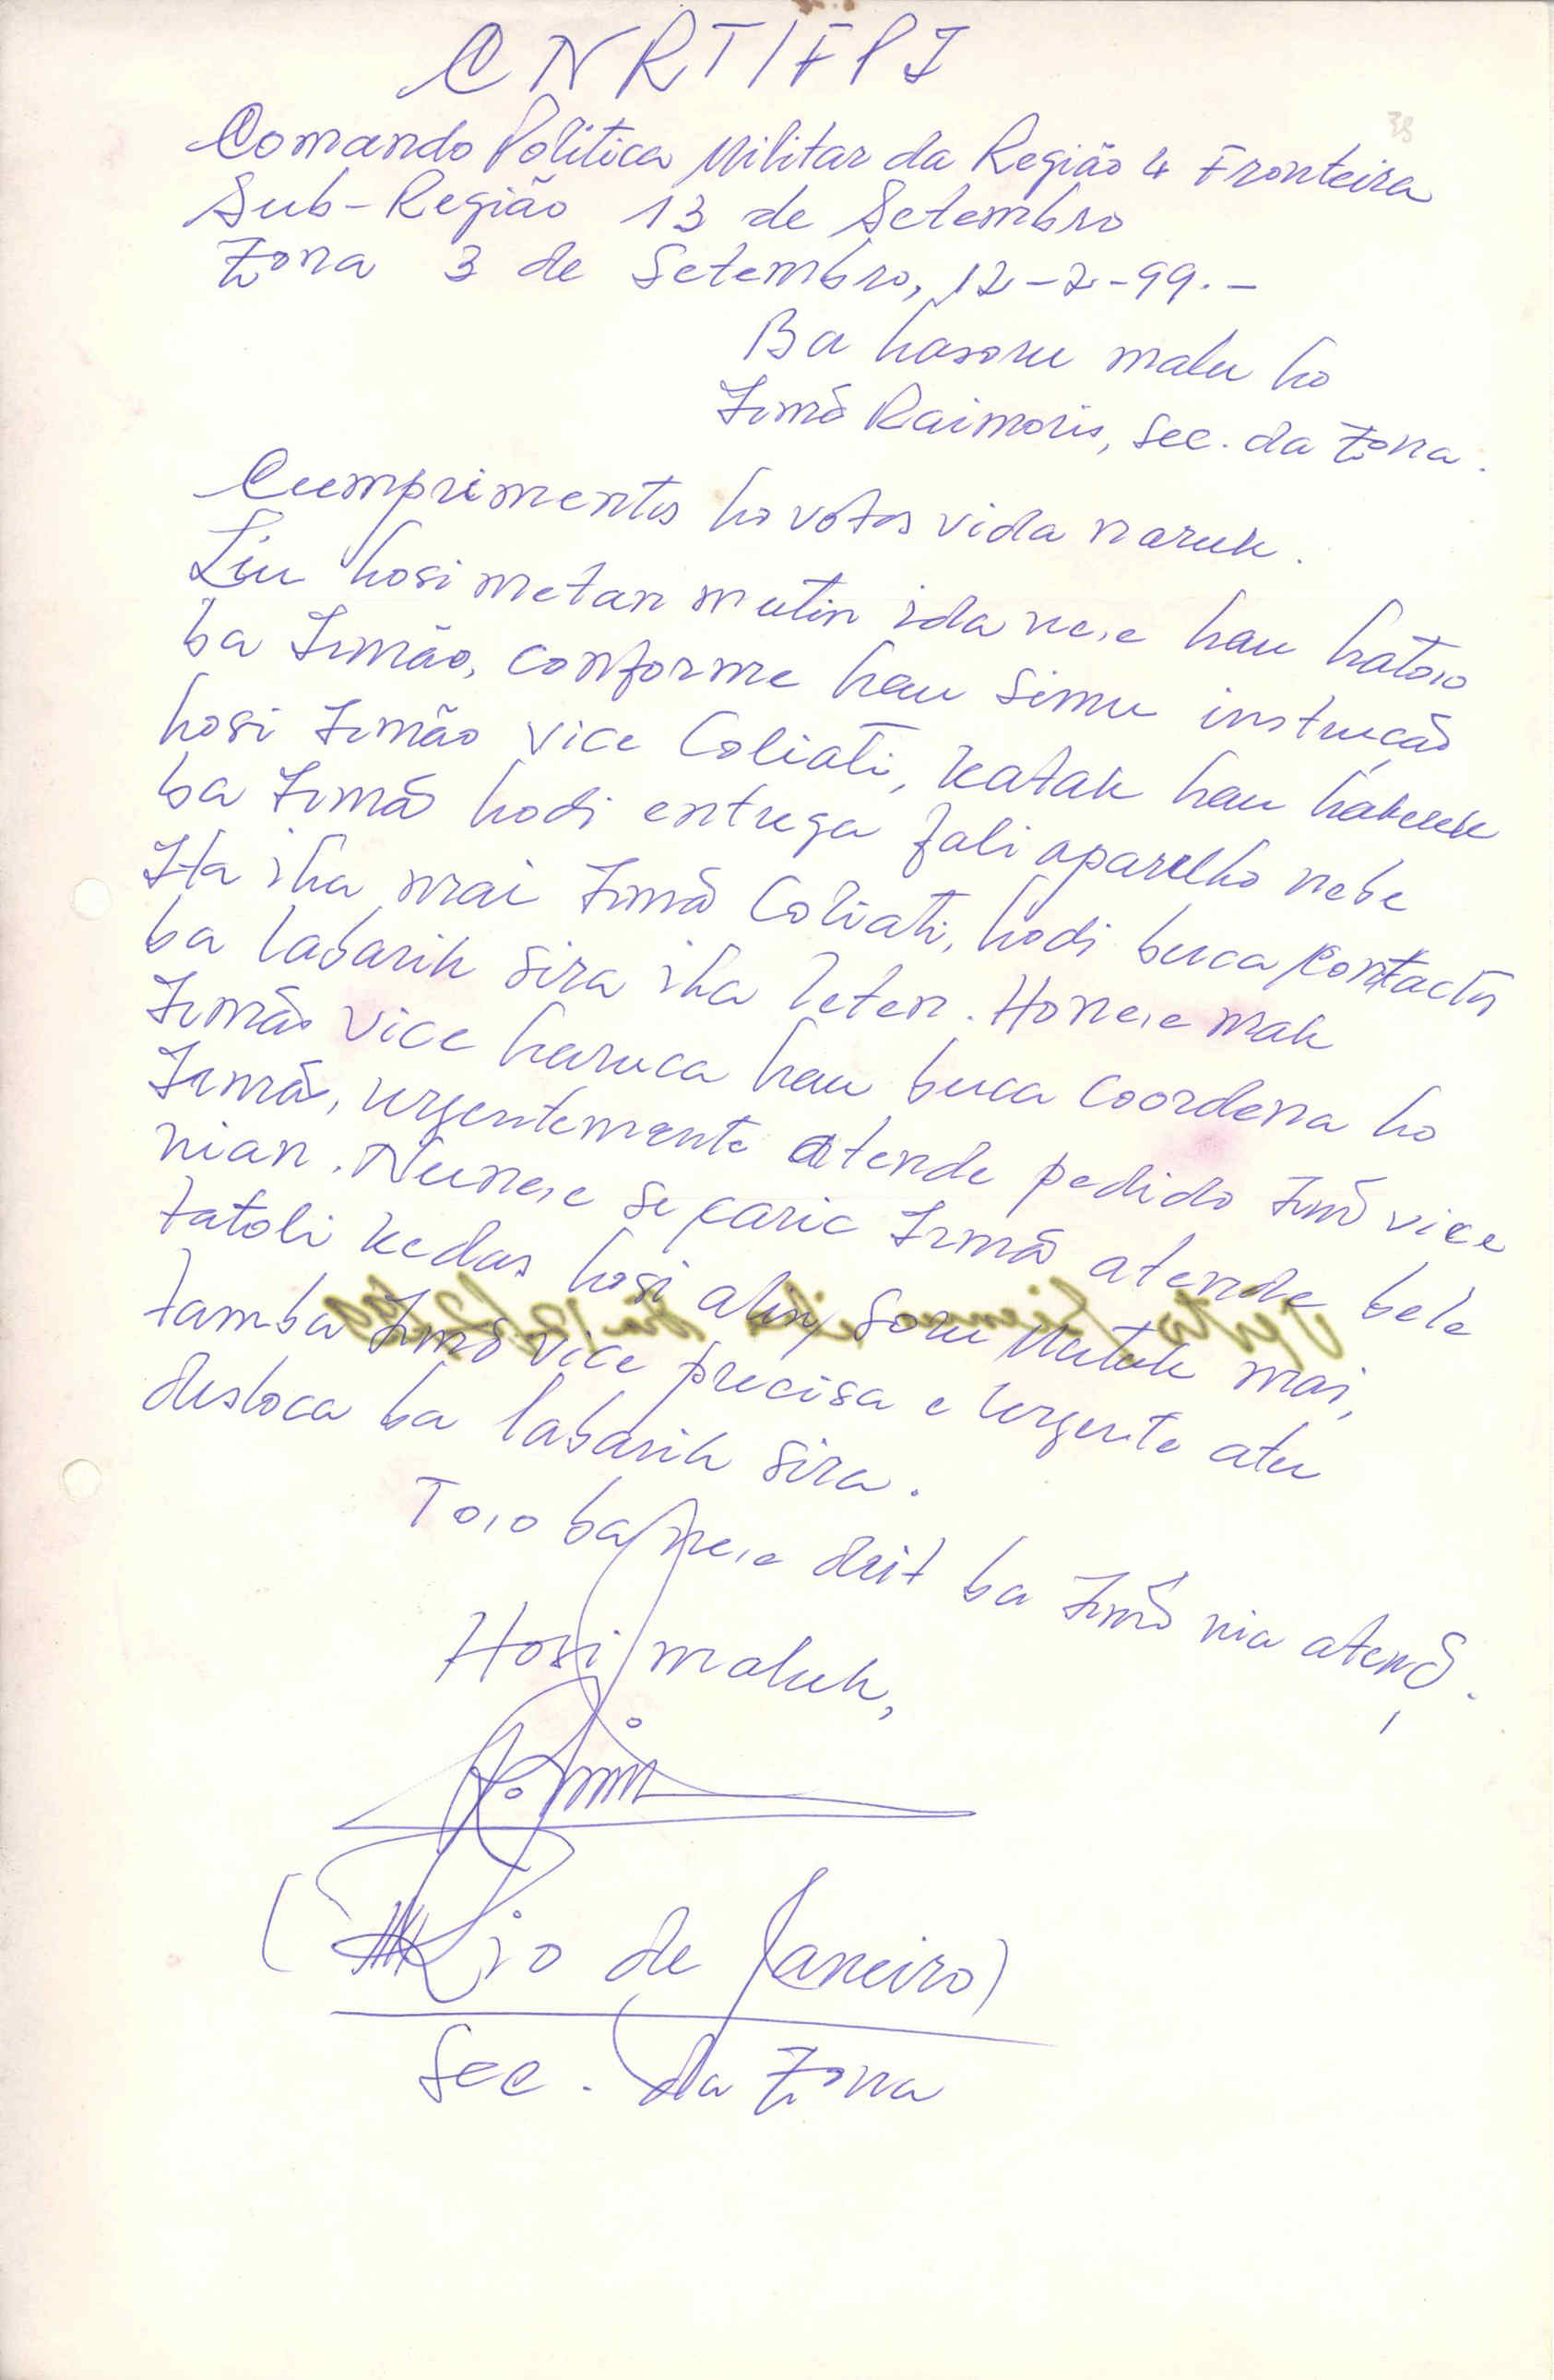 CNRT/FPI
Comando Politica Militar da Região 4 Fronteira
Sub-Região 13 de Setembro
Zona 3 de Setembro, 12-2-99.-
Ba hasoru malu ho
Irmõ Raimoris, Sec. da Zona.
Cumprimentos ho votos vida naruk.
Liu hosi metan mutin ida ne'e hau hato'o
ba Irmão, conforme hau simu instrução
hosi Irmão vice Coliati, katak hau hakerek
ba Irmão hodi entrega fali aparelho nebe
Ita iha mai Irmão Coliati, hodi buca contactos
ba labarik sira iha leten. Hone'e mak
Irmão vice haruca hau buca coordena ho
Irmão, urgentemente atende pedido Irmõ vice
nian. Nune'e se caric Irmão atende bele
tatoli kedas hosi alin Soru Mutuk mai,
tamba Irmõ vice precisa e urgente atu
desloca ba labarik sira.
To'o ba ne'e deit ba Irmõ nia atenç̃.
Hosi maluk,
(Rio de Janeiro)
Sec. da Zona